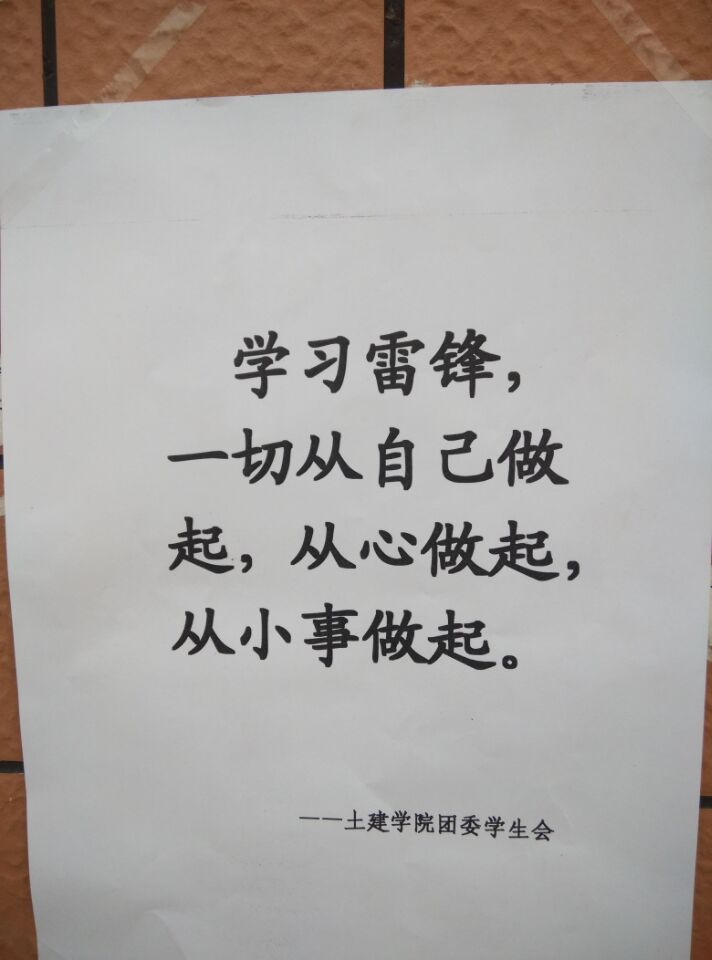 学习雷锋，
一切从自己做
起，从心做起，
从小事做起。
——土建学院团委学生会